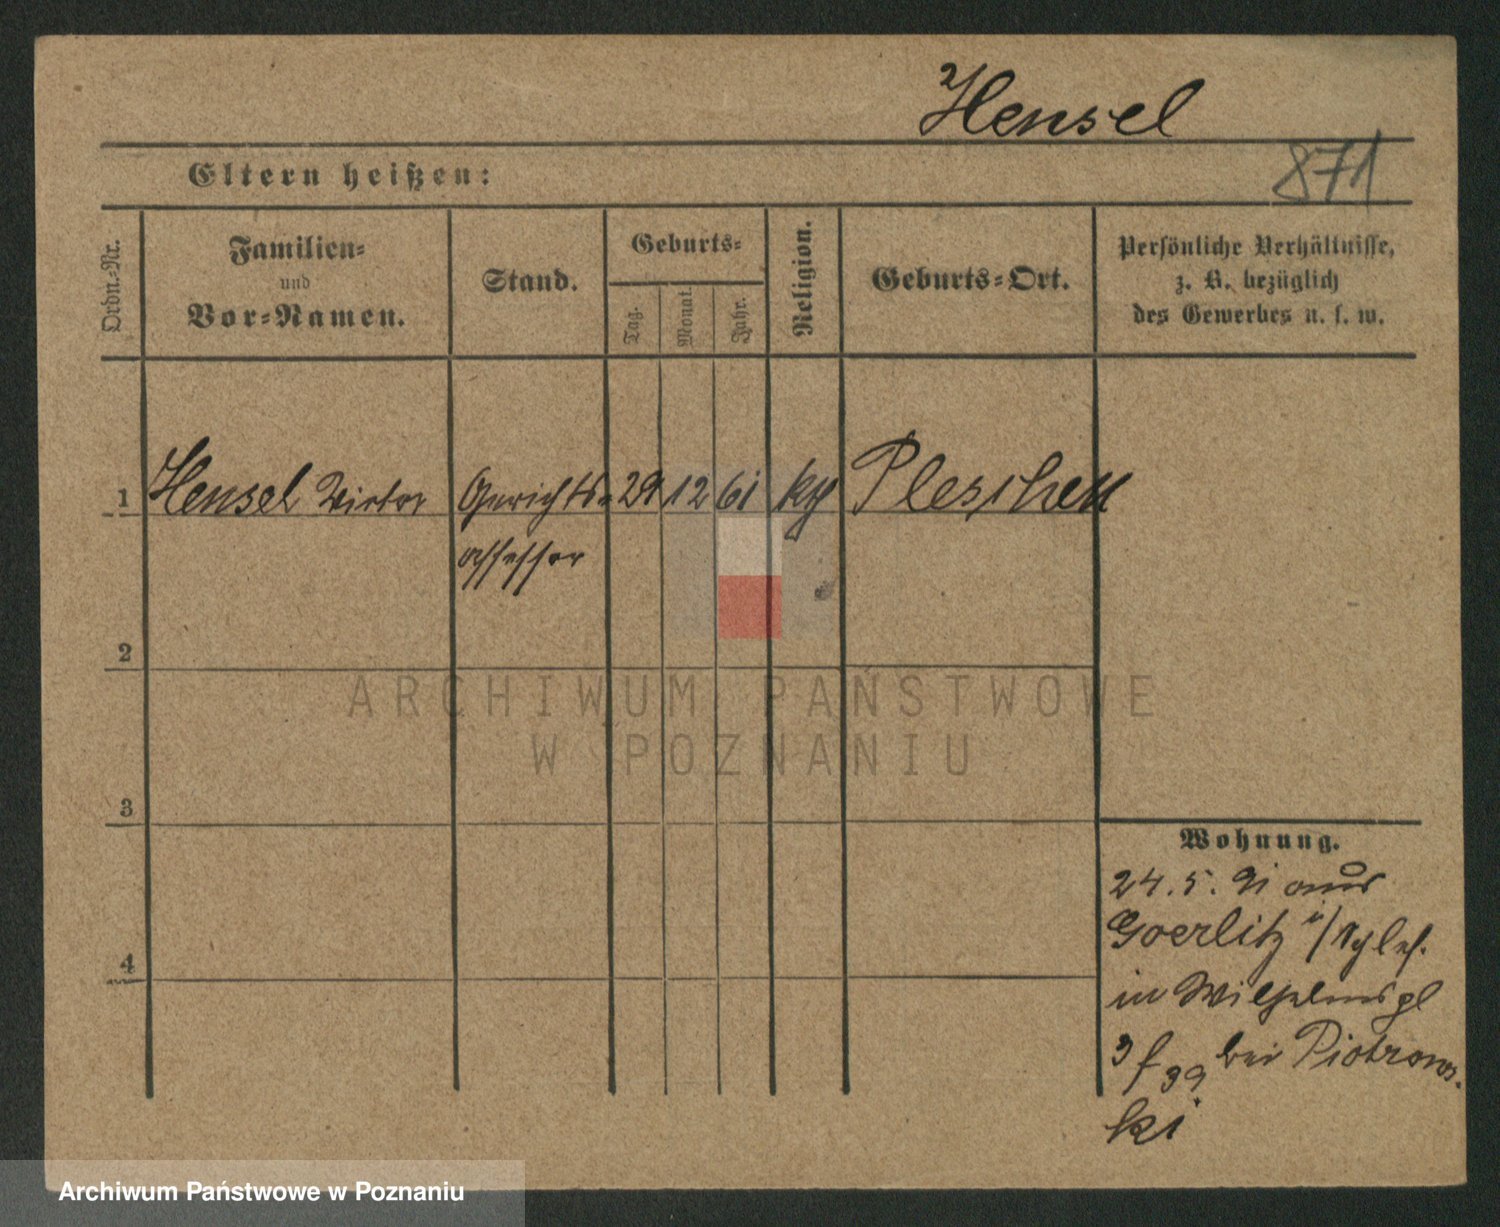 Hensel
871
Eltern heißen:
Ordn.-Nr.
Familien-
und
Vor-Namen.
Stand.
Geburts-
Tag.
Monat.
Jahr.
Religion.
Geburts-Ort.
Persönliche Verhältnisse,
z. B. bezüglich
des Gewerbes u. s. w.
1 Hensel Victor Gerichts- 29 12 61 Pleschen
assessor
2
ARCHIWUM PAŃSTWOWE
W POZNANIU
3
Wohnung.
24. 5. 91 aus
Goerlitz i/Schles.
in Wilhelmspl
3 bei Piotrows-
ki
4
Archiwum Państwowe w Poznaniu